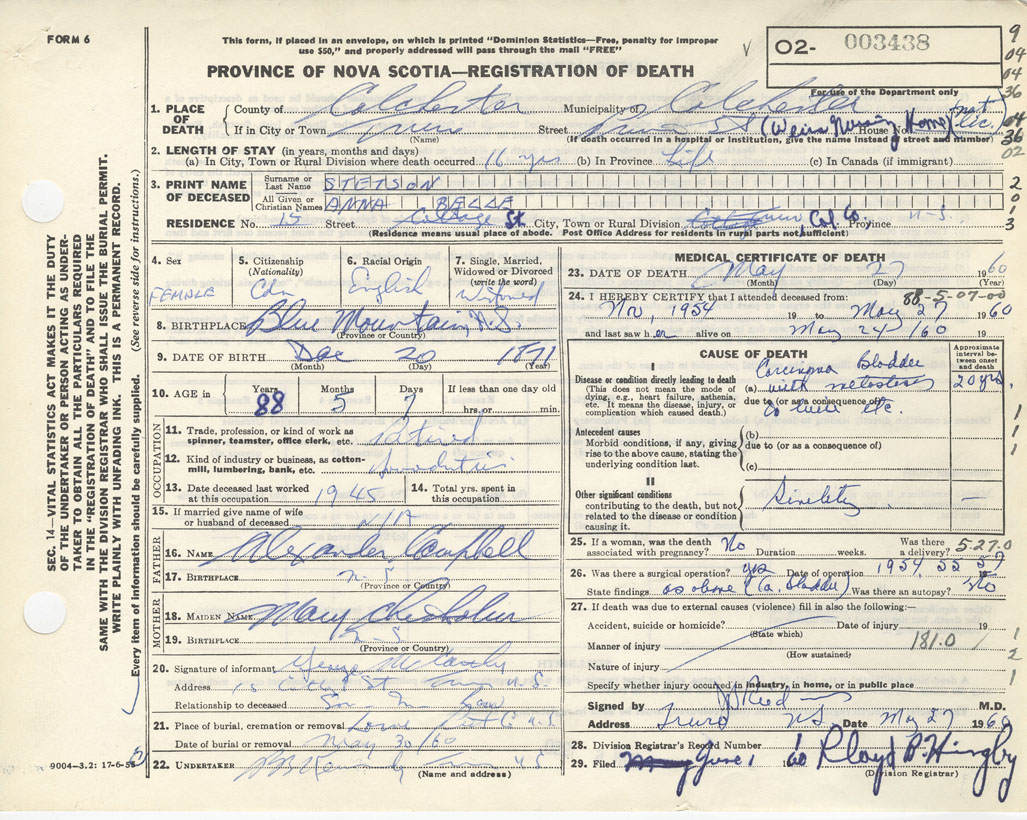 FORM 6
This form, if placed in an envelope, on which is printed "Dominion Statistics—Free, penalty for improper
use $50," and properly addressed will pass through the mail "FREE"
O2- 003438
For use of the Department only
PROVINCE OF NOVA SCOTIA—REGISTRATION OF DEATH
9
04
04
36
04
36
02
1. PLACE OF DEATH
County of Colchester Municipality of Colchester
If in City or Town Truro Street (Weirs Nursing Home) House No.
(Name) (If death occurred in a hospital or institution, give the name instead of street and number)
2. LENGTH OF STAY (in years, months and days)
(a) In City, Town or Rural Division where death occurred 16 yrs (b) In Province Life (c) In Canada (if immigrant)
3. PRINT NAME OF DECEASED
Surname or Last Name STETSON
All Given or Christian Names ANNA BELLE
2
0
1
3
RESIDENCE No. 15 Street St. City, Town or Rural Division Col. Co. Province N.S.
(Residence means usual place of abode. Post Office Address for residents in rural parts not sufficient)
4. Sex FEMALE
5. Citizenship (Nationality) Cdn
6. Racial Origin English
7. Single, Married, Widowed or Divorced (write the word) Widowed
8. BIRTHPLACE Blue Mountain, N.S.
(Province or Country)
9. DATE OF BIRTH Dec 20 1871
(Month) (Day) (Year)
10. AGE in Years 88 Months 5 Days 7 If less than one day old hrs. or min.
OCCUPATION
11. Trade, profession or kind of work as spinner, teamster, office clerk, etc. retired
12. Kind of industry or business, as cotton-mill, lumbering, bank, etc.
13. Date deceased last worked at this occupation 1945
14. Total yrs. spent in this occupation
15. If married give name of wife or husband of deceased N/A
FATHER
16. NAME Alexander Campbell
17. BIRTHPLACE N.S.
(Province or Country)
MOTHER
18. MAIDEN NAME Mary Chisholm
19. BIRTHPLACE N.S.
(Province or Country)
20. Signature of informant George
Address 15 St. N.S.
Relationship to deceased Son
21. Place of burial, cremation or removal N.S.
Date of burial or removal May 30/60
22. UNDERTAKER N.S.
(Name and address)
MEDICAL CERTIFICATE OF DEATH
23. DATE OF DEATH May 27 1960
(Month) (Day) (Year)
88-5-07-00
24. I HEREBY CERTIFY that I attended deceased from:
Nov, 1954 19 to May 27 1960
and last saw her alive on May 24/60 19
CAUSE OF DEATH
Approximate interval between onset and death
I
Disease or condition directly leading to death
(This does not mean the mode of dying, e.g., heart failure, asthenia, etc. It means the disease, injury, or complication which caused death.)
Carcinoma Bladder
(a) with metastases 20 yrs.
due to (or as a consequence of)
to liver etc.
Antecedent causes
Morbid conditions, if any, giving rise to the above cause, stating the underlying condition last.
(b)
due to (or as a consequence of)
(c)
II
Other significant conditions contributing to the death, but not related to the disease or condition causing it.
Senility
1
1
1
25. If a woman, was the death associated with pregnancy? No Duration weeks. Was there a delivery?
5.27.0
26. Was there a surgical operation? yes Date of operation 1954, 55 57
State findings as above (Ca. bladder) Was there an autopsy? No
27. If death was due to external causes (violence) fill in also the following:—
Accident, suicide or homicide? Date of injury 19
(State which)
Manner of injury 181.0
(How sustained)
Nature of injury
Specify whether injury occurred in industry, in home, or in public place
1
2
1
Signed by Reed M.D.
Address Truro NS Date May 27 1960
28. Division Registrar's Record Number
29. Filed June 1 1960 Lloyd B. Hingley
(Division Registrar)
SEC. 14—VITAL STATISTICS ACT MAKES IT THE DUTY
OF THE UNDERTAKER OR PERSON ACTING AS UNDER-
TAKER TO OBTAIN ALL THE PARTICULARS REQUIRED
IN THE "REGISTRATION OF DEATH" AND TO FILE THE
SAME WITH THE DIVISION REGISTRAR WHO SHALL ISSUE THE BURIAL PERMIT.
WRITE PLAINLY WITH UNFADING INK. THIS IS A PERMANENT RECORD.
Every item of information should be carefully supplied. (See reverse side for instructions.)